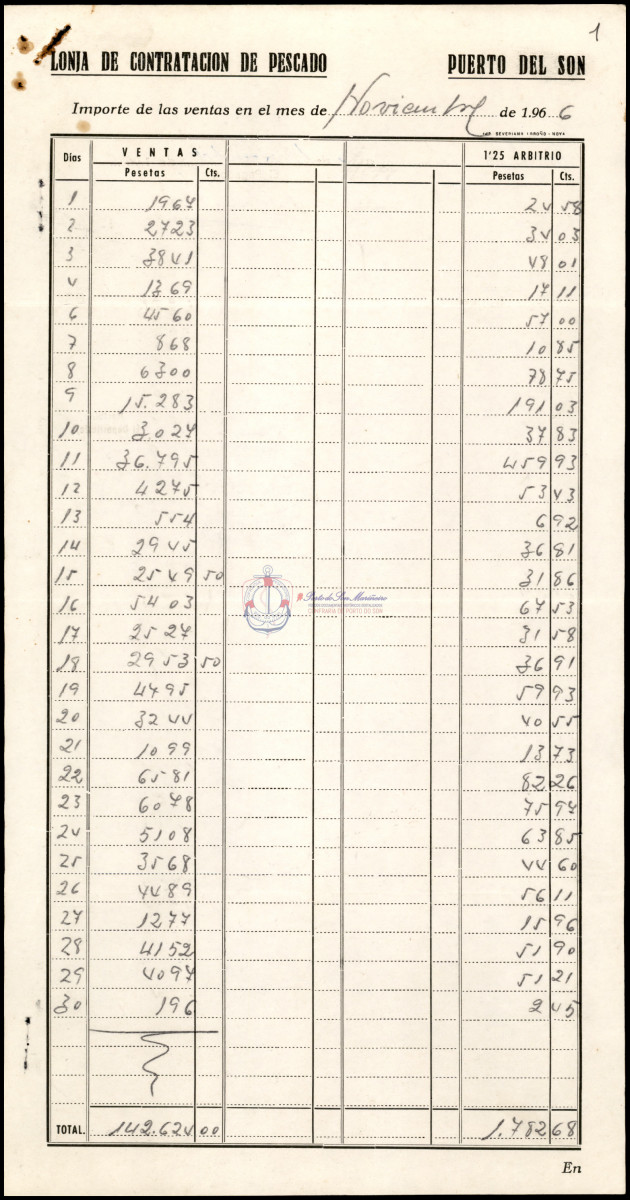 1
LONJA DE CONTRATACION DE PESCADO PUERTO DEL SON
Importe de las ventas en el mes de Noviembre de 1.966
IMP. SEVERIANA - ARGÑO - NOYA
Días VENTAS 1'25 ARBITRIO
Pesetas Cts. Pesetas Cts.
1 1967 24 58
2 2723 34 03
3 3841 48 01
4 1369 17 11
6 4560 57 00
7 868 10 85
8 6300 78 75
9 15.283 191 03
10 3027 37 83
11 36.795 459 93
12 4275 53 43
13 554 6 92
14 2945 36 81
15 2549 50 31 86
16 5403 67 53
17 2527 31 58
18 2953 50 36 91
19 4795 59 93
20 3244 40 55
21 1099 13 73
22 6581 82 26
23 6078 75 97
24 5108 63 85
25 3568 44 60
26 4489 56 11
27 1277 15 96
28 4152 51 90
29 4097 51 21
30 196 2 45
TOTAL. 142.624 00 1.782 68
En
Porto do Son Mariñeiro
CONFRARÍA DE PORTO DO SON